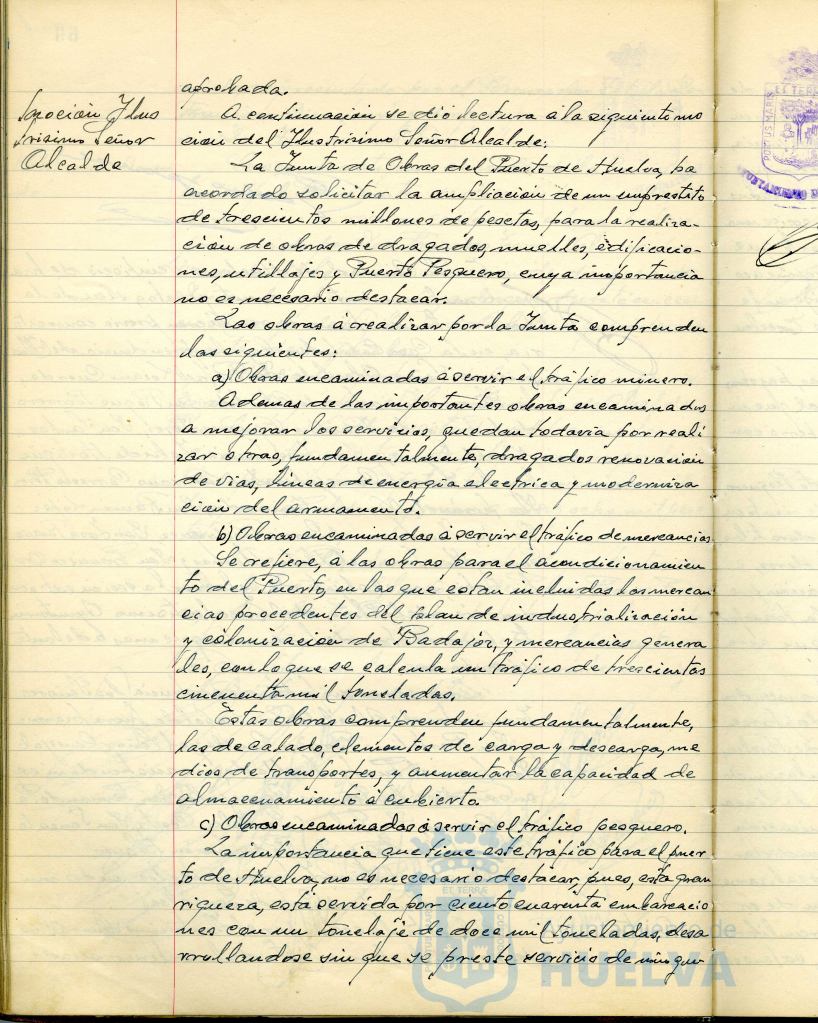 aprobada.
Moción Ilus
trisimo Señor
Alcalde
A continuación se dió lectura á la siguiente mo
ción del Ilustrísimo Señor Alcalde:
La Junta de Obras del Puerto de Huelva, ha
acordado solicitar la ampliación de un emprestito
de trescientos millones de pesetas, para la realiza-
ción de obras de dragados, muelles, edificacio-
nes, utillajes y Puerto Pesquero, cuya importancia
no es necesario destacar.
Las obras á realizar por la Junta comprenden
las siguientes:
a) Obras encaminadas á servir el tráfico minero.
Ademas de las importantes obras encaminadas
a mejorar los servicios, quedan todavía por reali
zar otras, fundamentalmente, dragados renovación
de vias, lineas de energia electrica y moderniza
ción del armamento.
b) Obras encaminadas á servir el tráfico de mercancias
Se refiere, á las obras para el acondicionamien
to del Puerto, en las que estan incluidas las mercan
cias procedentes del plan de industrialización
y colonización de Badajóz, y mercancias genera
les, con lo que se calcula un tráfico de trescientas
cincuenta mil toneladas.
Estas obras comprenden fundamentalmente,
las de calado, elementos de carga y descarga, me
dios de transportes, y aumentar la capacidad de
almacenamiento á cubierto.
c) Obras encaminadas á servir el tráfico pesquero.
La importancia que tiene este tráfico para el puer
to de Huelva, no es necesario destacar, pues, esta gran
riqueza, está servida por ciento cuarenta embarcacio
nes con un tonelaje de doce mil toneladas, desa
rrollandose sin que se preste servicio de ningu
ET TERRÆ
HUELVA